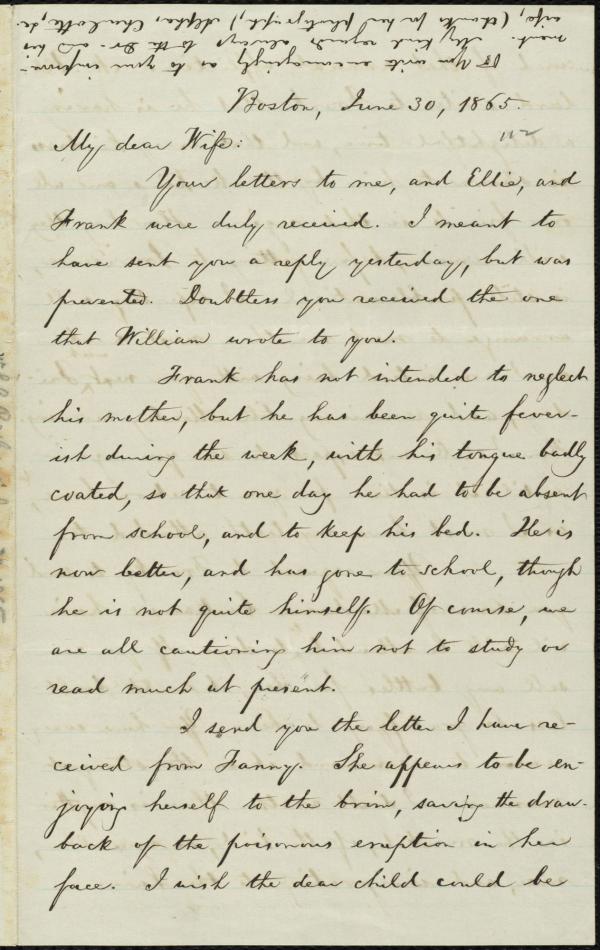 ☞ You write encouragingly as to your improve-
ment. My kind regards always to the Dr. and his
wife, (thanks for her photograph,) Charlotte, &c.
Boston, June 30, 1865.
112
My dear Wife:
Your letters to me, and Ellie, and
Frank were duly received. I meant to
have sent you a reply yesterday, but was
prevented. Doubtless you received the one
that William wrote to you.
Frank has not intended to neglect
his mother, but he has been quite fever-
ish during the week, with his tongue badly
coated, so that one day he had to be absent
from school, and to keep his bed. He is
now better, and has gone to school, though
he is not quite himself. Of course, we
are all cautioning him not to study or
read much at present.
I send you the letter I have re-
ceived from Fanny. She appears to be en-
joying herself to the brim, saving the draw-
back of the poisonous eruption in her
face. I wish the dear child could be